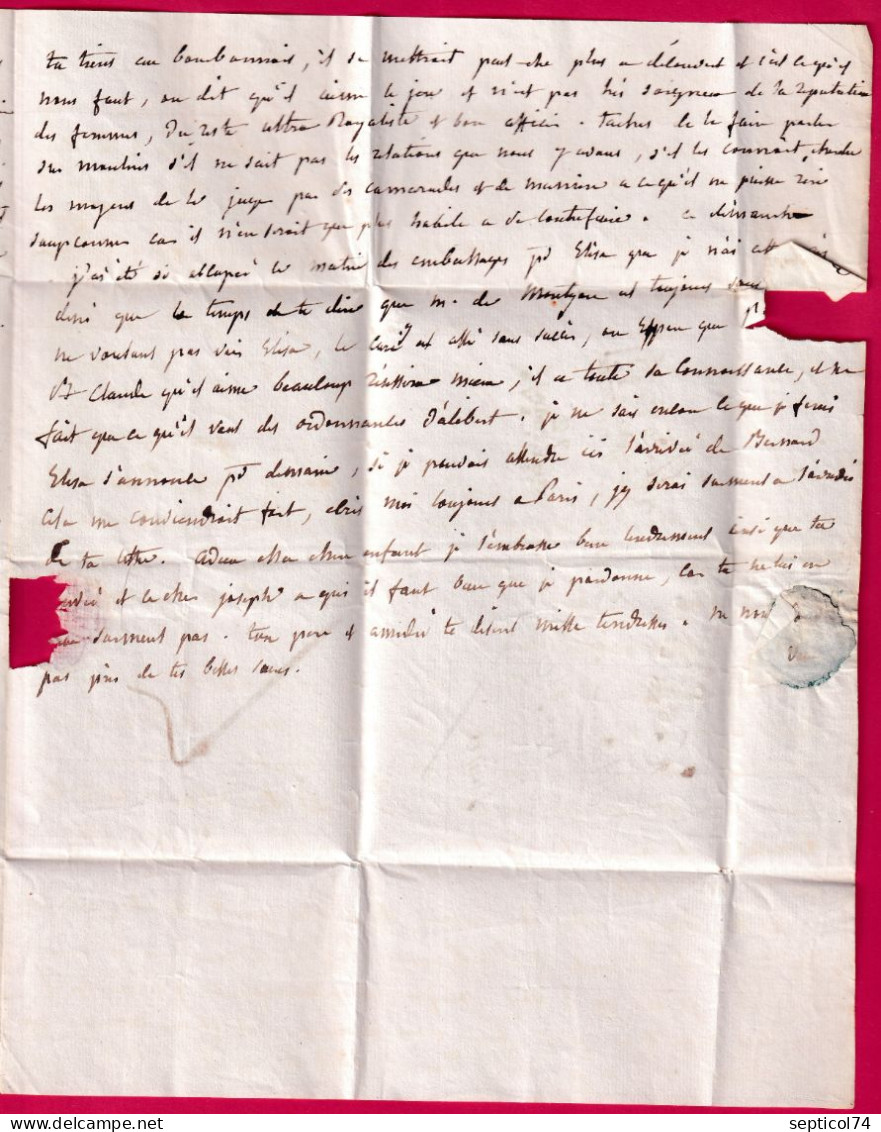 ta tiens au bourbonnais, il se mettroit peut-etre plus a découvert et c'est ce qu'il
nous faut, on dit qu'il aime le jeu et n'est pas très soigneux de la réputation
des femmes, du reste ultra Royaliste et bon officier. taches de le faire parler
sur moulins s'il ne sait pas les relations que nous y avons, s'il les connoit, cherche
les moyens de le juger par des camarades et de maniere a ce qu'il ne puisse rien
soupconner car il n'en seroit que plus habile a se contrefaire. ce dimanche
j'ai été si occupée ce matin des emballages pr Elisa que je n'ai
que le temps de te dire que m. de est toujours
ne voulant pas voir Elisa, le curé y est allé sans succès, on Espere que
St Claude qu'il aime beaucoup réussira mieux, il a toute sa connoissance, et ne
fait que ce qu'il veut des ordonnances d'alibert. je ne sais encore ce que je ferai
Elisa s'annonce pr demain, si je pouvois attendre ici l'arrivée de Bernard
cela me conviendroit fort, ecris moi toujours a Paris, j'y serai surement a l'arrivée
de ta lettre. adieu chere chere enfant je t'embrasse bien tendrement ainsi que ta
et le cher joseph a qui il faut bien que je pardonne, car tu ne lui en
pas. ton pere et amédée te disent mille tendresses. ne
pas près de tes belles soeurs.
septicol74